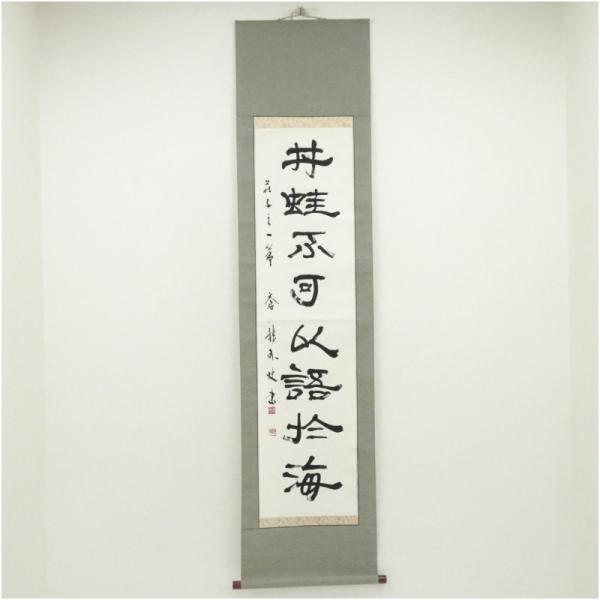 井蛙不可以語於海
莊子之一節 春龍
書